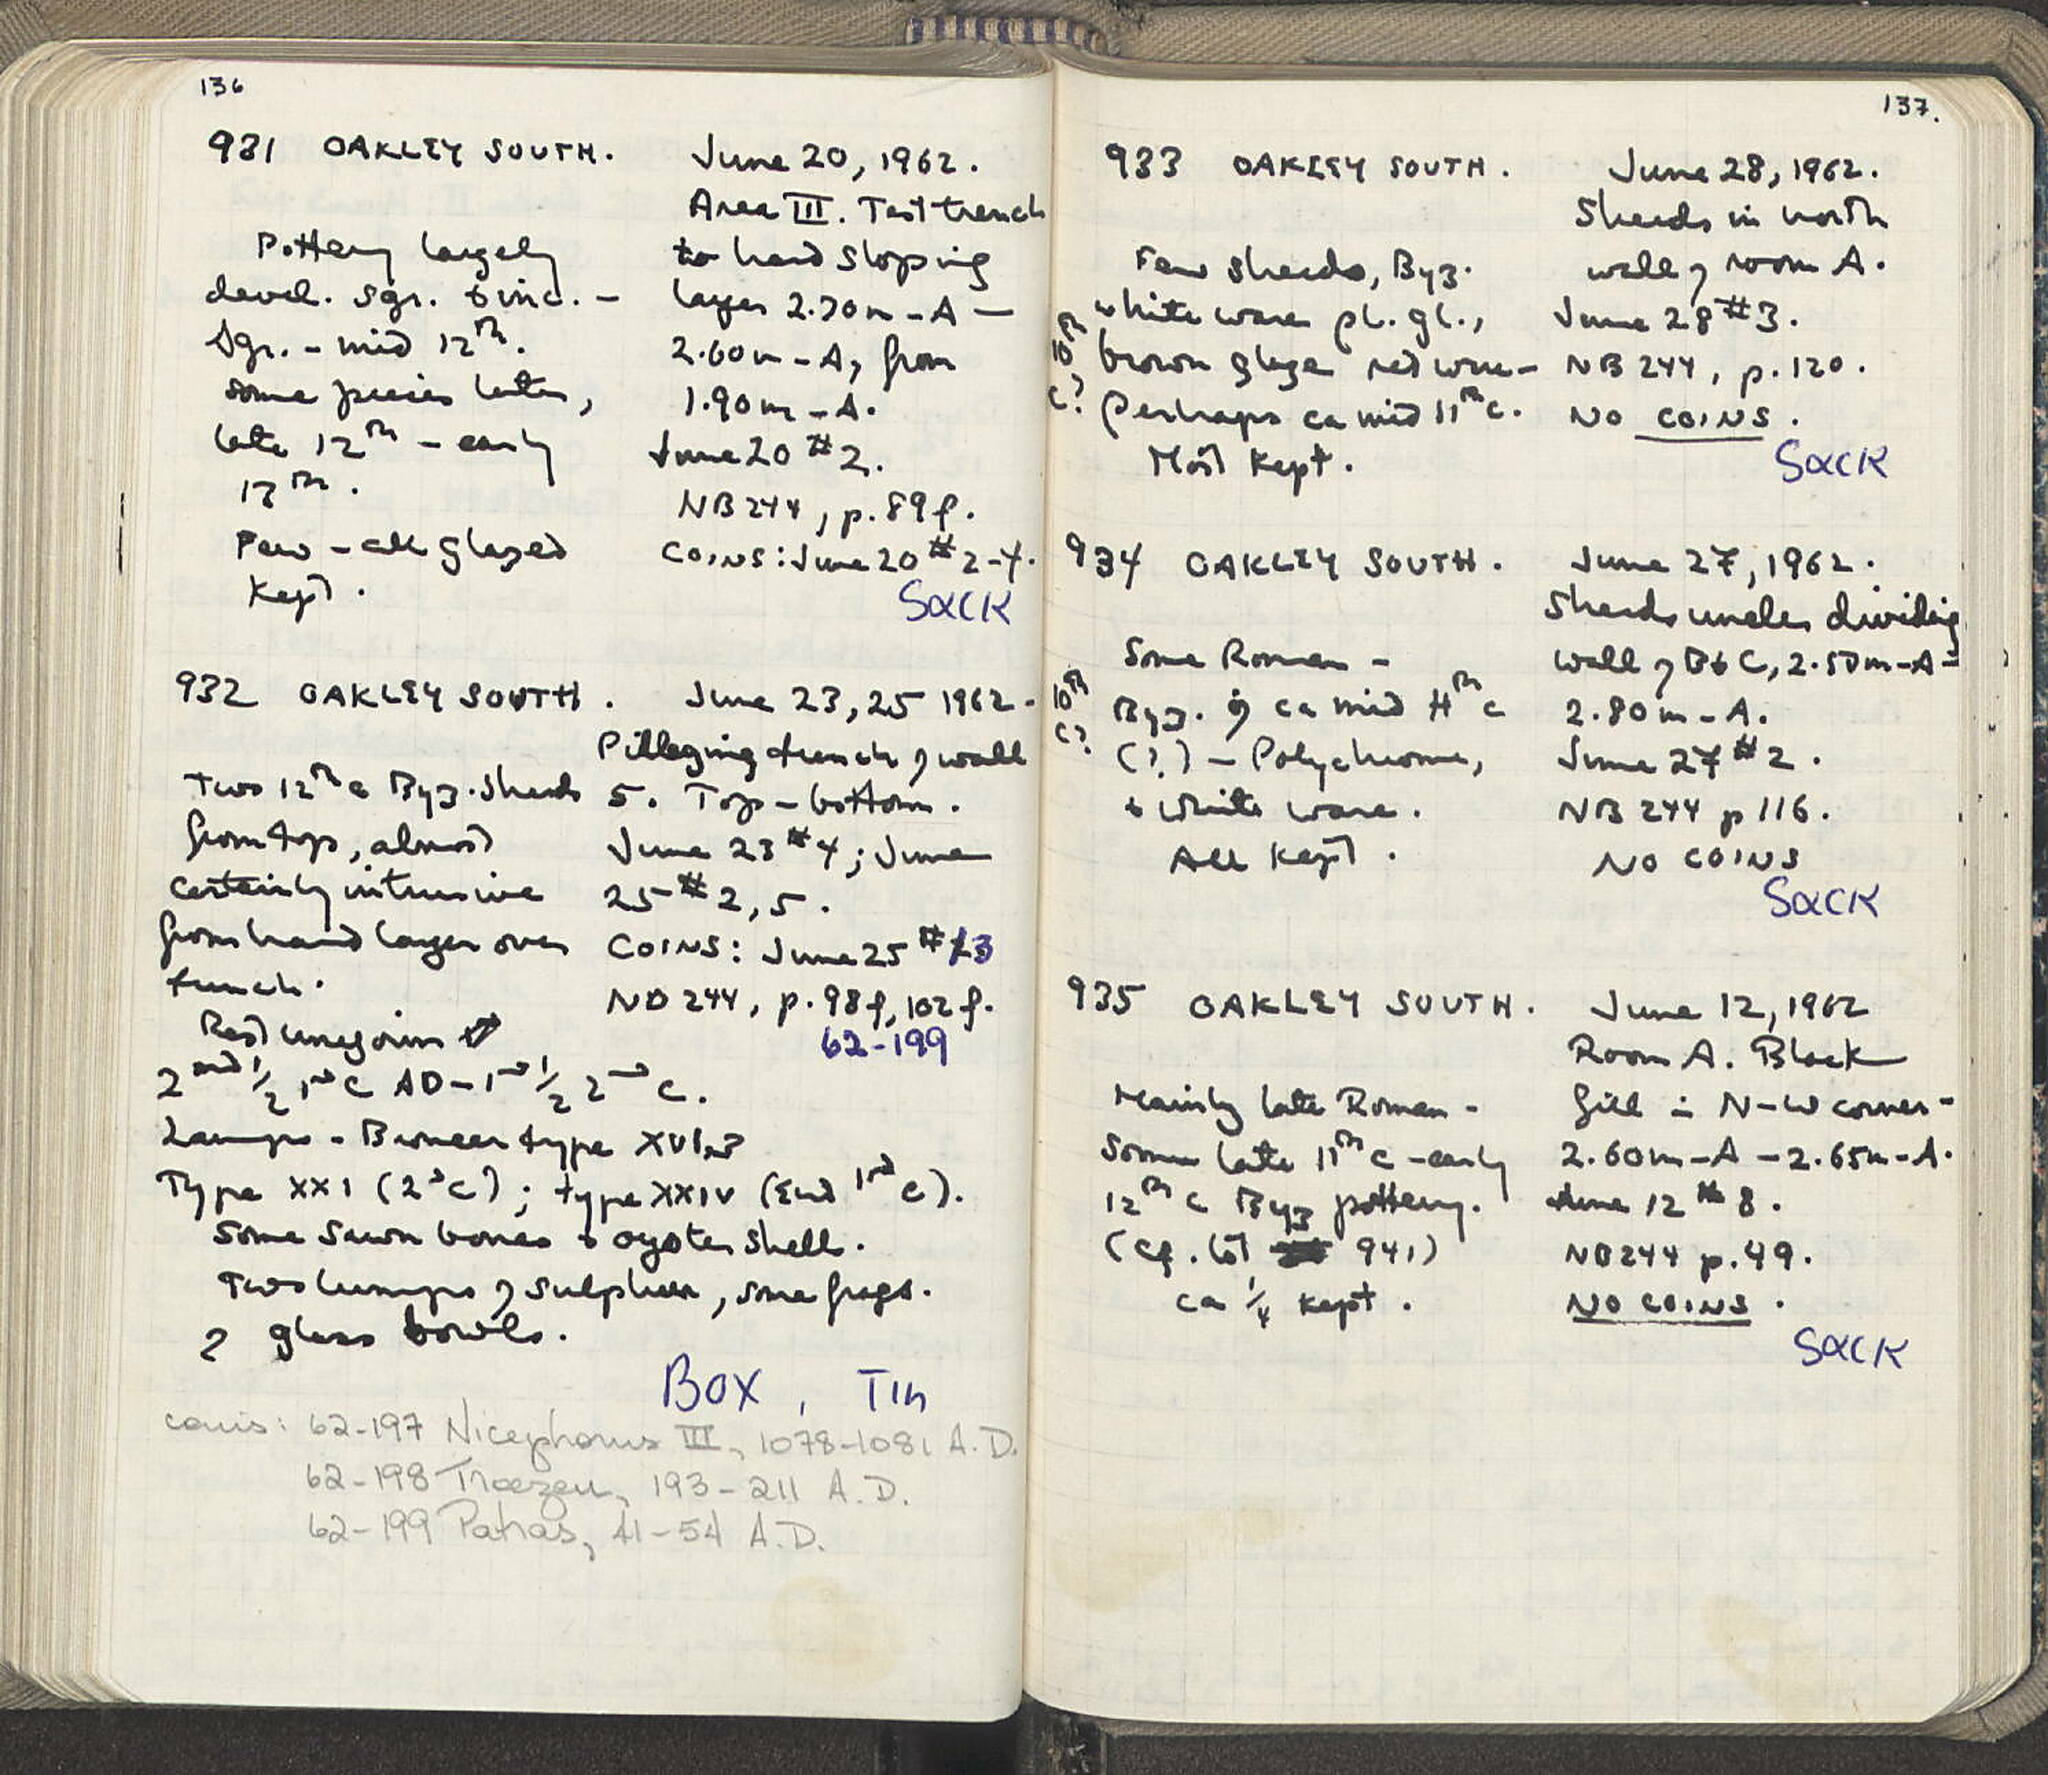 136
931 OAKLEY SOUTH. June 20, 1962.
Area III. Test trench
to hard sloping
layer 2.70m-A —
2.60m-A, from
1.90m-A.
June 20 #2.
NB 244, p. 89f.
COINS: June 20 #2-4.
SACK
Pottery largely
devel. sgr. & inc. -
sgr. - mid 12th.
some pieces later,
late 12th - early
13th.
Few - all glazed
kept.
932 OAKLEY SOUTH. June 23, 25 1962.
Pillaging trench of wall
5. Top - bottom.
June 23 #4; June
25 #2, 5.
COINS: June 25 #13
NB 244, p. 98f, 102f.
62-199
Two 12th c Byz. sherds
from top, almost
certainly intrusive
from hard layer over
trench.
Rest uniform
2nd 1/2 1st C AD - 1st 1/2 2nd C.
Lamps - Broneer type XVI,
Type XXI (2nd C); type XXIV (End 1st C).
Some sawn bones & oyster shell.
Two lumps of sulphur, some frags.
2 glass bowls.
BOX, TIn
coins: 62-197 Nicephorus III, 1078-1081 A.D.
62-198 Troezen, 193-211 A.D.
62-199 Patras, 41-54 A.D.
137.
933 OAKLEY SOUTH. June 28, 1962.
Sherds in north
wall of room A.
June 28 #3.
NB 244, p. 120.
NO COINS.
SACK
Few sherds, Byz.
white ware pl. gl.,
brown glaze red ware -
perhaps ca mid 11th c.
Most kept.
10th
C?
934 OAKLEY SOUTH. June 27, 1962.
Sherds under dividing
wall of B & C, 2.50m-A -
2.80m-A.
June 27 #2.
NB 244 p 116.
NO COINS
SACK
Some Roman -
Byz. of ca mid 11th c
(?) - Polychrome,
& white ware.
All kept.
10th
C?
935 OAKLEY SOUTH. June 12, 1962
Room A. Black
fill in N-W corner -
2.60m-A - 2.65m-A.
June 12 #8.
NB 244 p. 49.
NO COINS.
SACK
Mainly late Roman -
some late 11th c - early
12th c Byz pottery.
(cf. lot 941)
ca 1/4 kept.